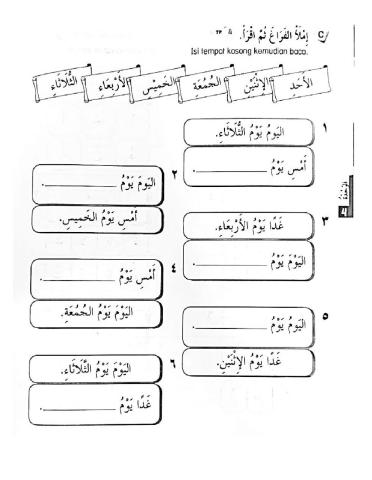 C/ إِمْلَأْ الفَرَاغَ ثُمَّ اقْرَأْ.
Isi tempat kosong kemudian baca.
الأَحَدِ الإِثْنَيْنِ الْجُمُعَةِ الْخَمِيْسِ الأَرْبَعَاءِ الثُّلَاثَاءِ
١
اليَوْمُ يَوْمُ الثُّلَاثَاءِ.
أَمْسِ يَوْمُ __________.
٢
اليَوْمَ يَوْمُ __________.
أَمْسِ يَوْمُ الخَمِيْسِ.
٣
غَدًا يَوْمُ الأَرْبِعَاءِ.
اليَوْمَ يَوْمُ __________.
٤
أَمْسِ يَوْمُ __________.
اليَوْمُ يَوْمُ الْجُمُعَةِ.
٥
اليَوْمُ يَوْمُ __________.
غَدًا يَوْمُ الإِثْنَيْنِ.
٦
اليَوْمَ يَوْمُ الثَّلَاثَاءِ.
غَدًا يَوْمُ __________.